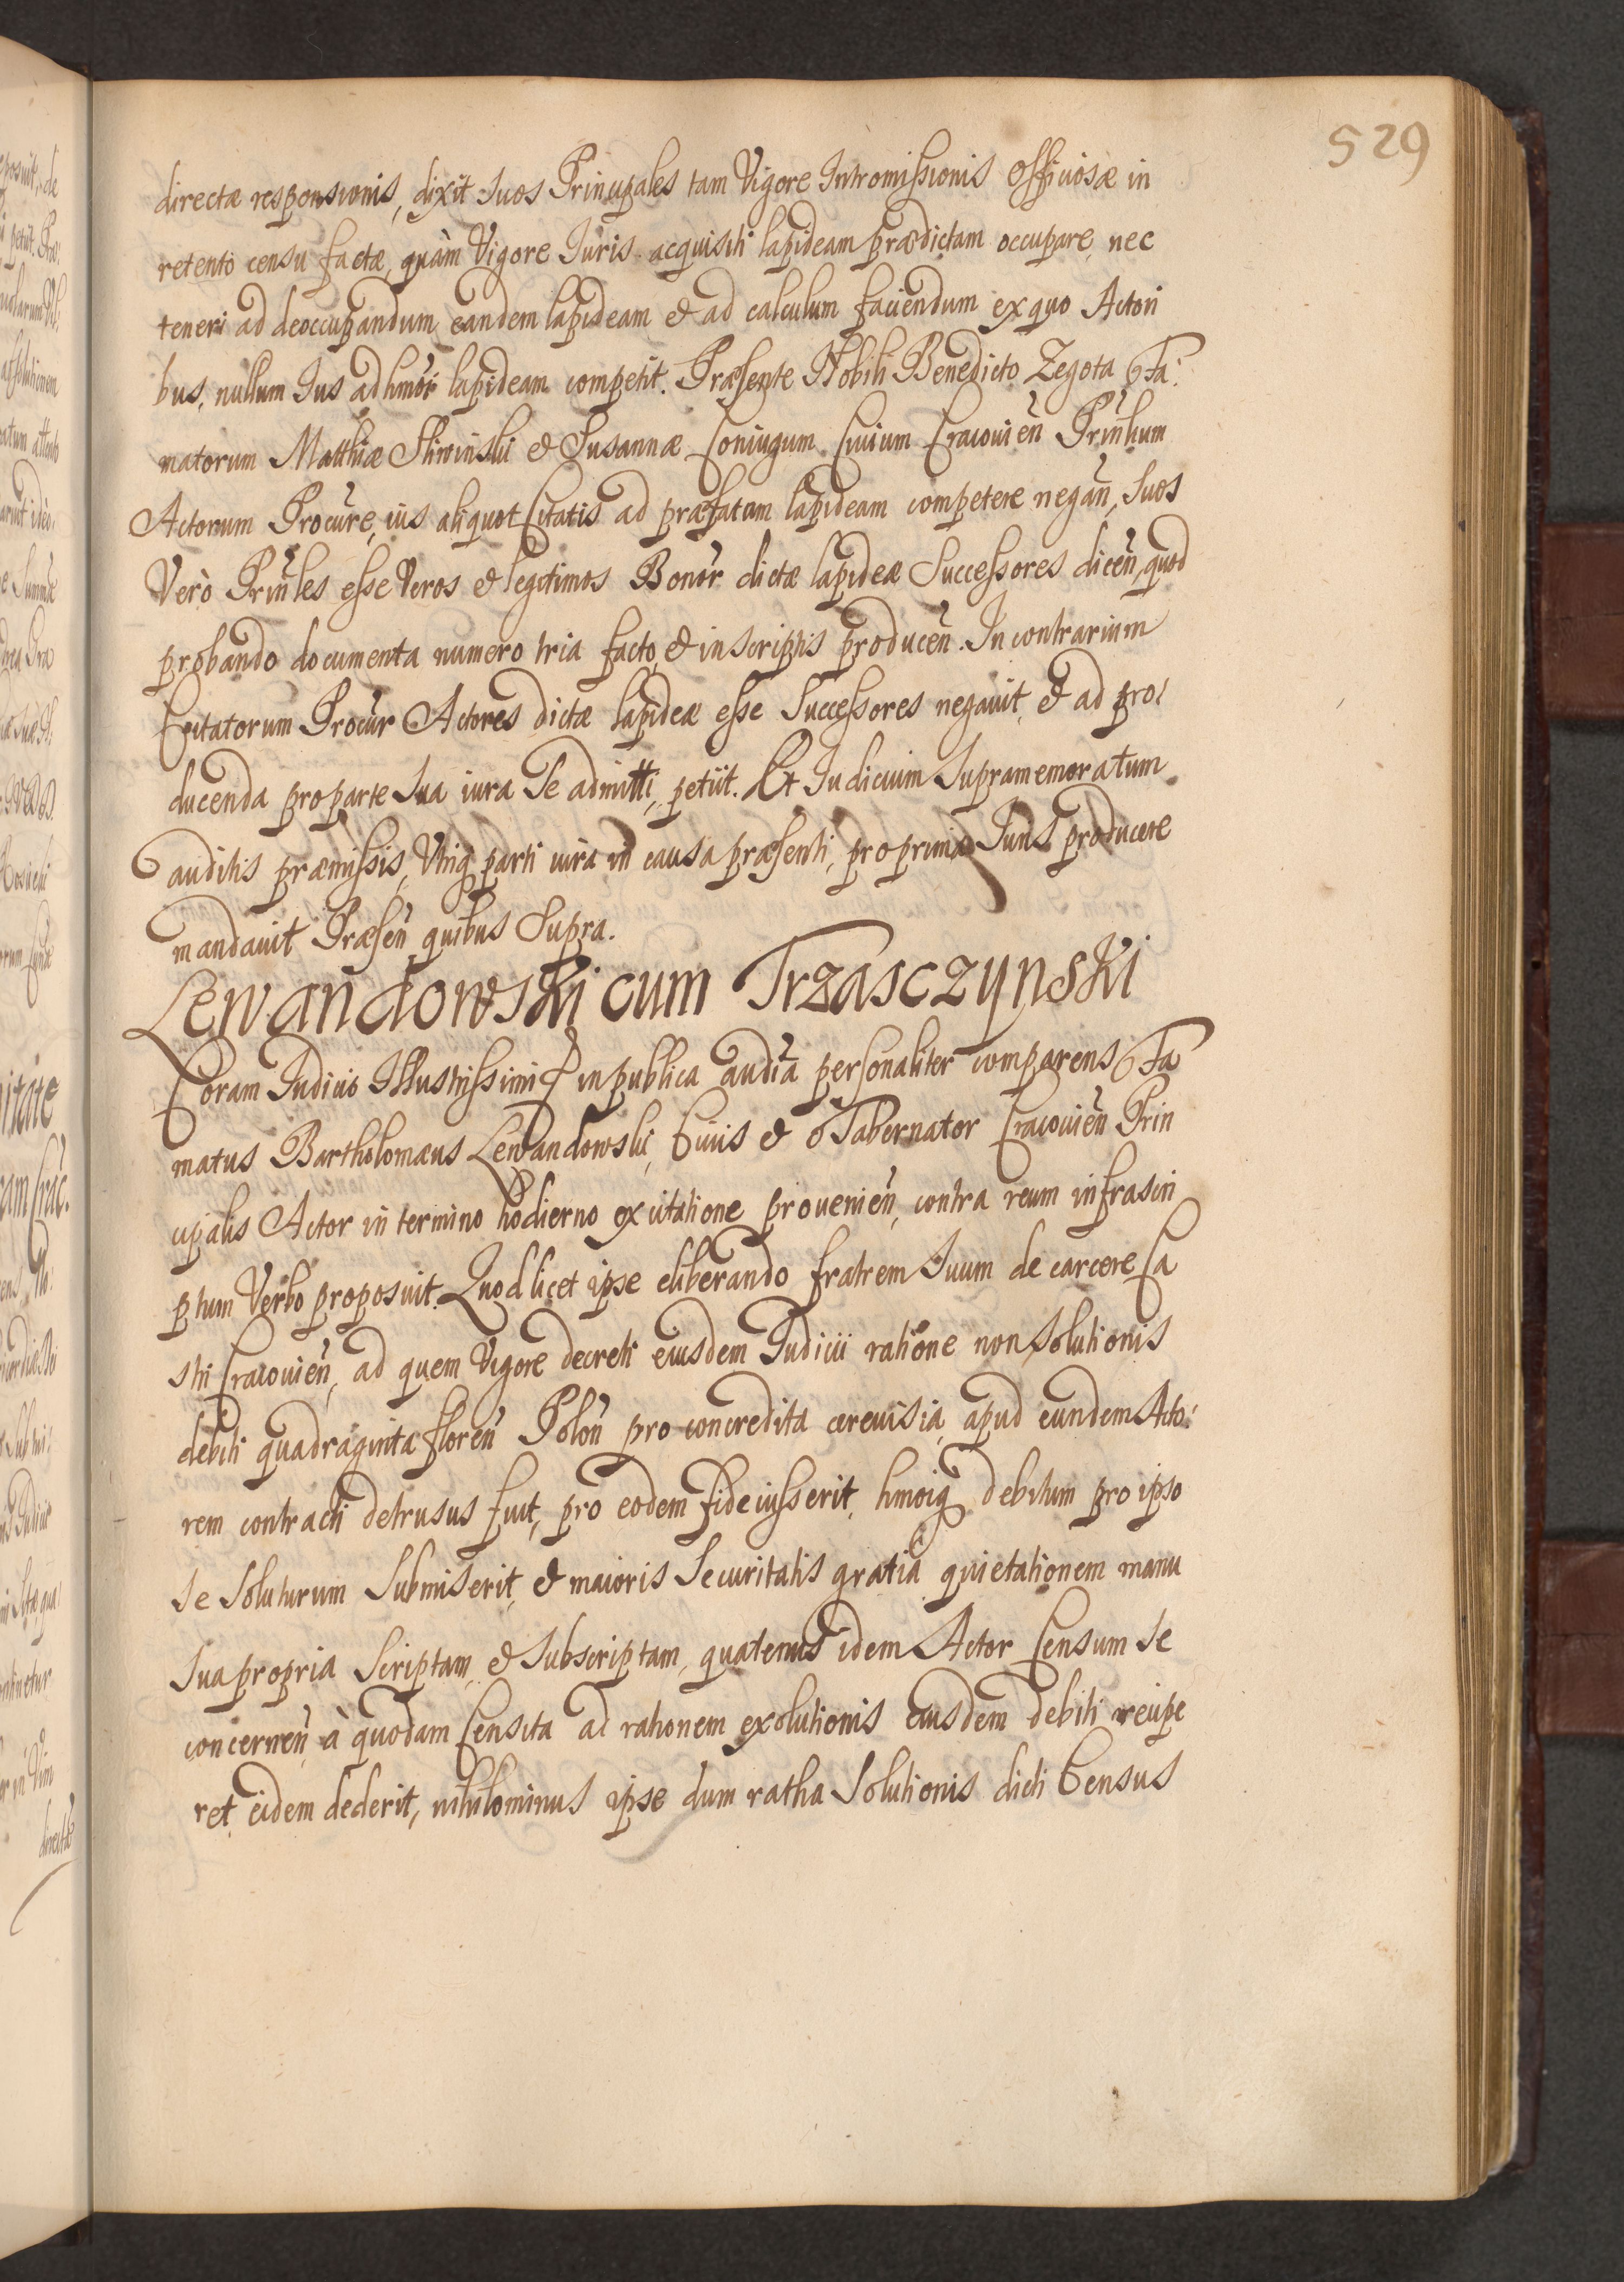 529
directæ responsionis, dixit suos Principales tam Vigore Intromissionis Officiosæ in
retento censu factæ, quàm Vigore Iuris acquisiti lapideam prædictam occupare, nec
teneri ad deoccupandum eandem lapideam & ad calculum faciendum ex quo Actori
bus, nullum Ius ad hmōi lapideam competit. Præsente Nobili Benedicto Zegota Fa:
matorum Matthiæ Sliwinski & Susannæ Coniugum Civium Cracouień Prinlium
Actorum Procure, ius aliquot Citatis ad præfatam lapideam competere negań, suos
Verò Prinles esse Veros & legitimos Bonor dictæ lapideæ Successores diceń, quod
probando documenta numero tria facto & in scriptis produceń. In contrarium
Citatorum Procur Actores dictæ lapideæ esse Successores negauit, & ad pro:
ducenda pro parte sua iura se admitti, petiit. Et Iudicium supramemoratum
auditis præmissis, Utriq parti iura in causa præsenti, pro primis Iuris producere
mandauit Præseń quibus supra.
Lewandowski cum Trzasczynski
Coram Iudicio Illustrissimi in publica audīa personaliter comparens Fa
matus Bartholomæus Lewandowski, Ciuis & Tabernator Cracouień Prin
cipalis Actor in termino hodierno ex citatione prouenień, contra reum infrascri
ptum Verbo proposuit. Quod licet ipse eliberando fratrem suum de carcere Ca
stri Cracouień, ad quem Vigore decreti eiusdem Iudicii ratione non solutionis
debiti quadraginta floreń Poloń pro concredita cereuisia, apud eundem Acto:
rem contracti detrusus fuit, pro eodem fideiusserit, hmoiq debitum pro ipso
se soluturum submiserit, & maioris securitatis gratiâ quietationem manu
sua propria scriptam & subscriptam, quatenus idem Actor Censum se
concerneń à quodam Censita ad rationem exolutionis eiusdem debiti recipe
ret, eidem dederit, nihilominus ipse dum ratha solutionis dicti Census